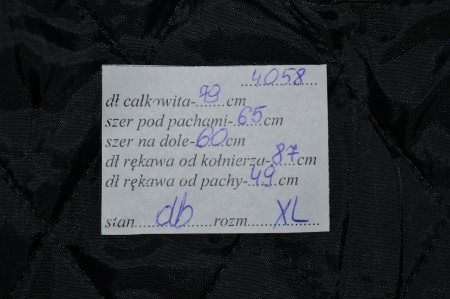 4058
dł całkowita-79cm
szer pod pachami-65cm
szer na dole-60cm
dł rękawa od kołnierza-87cm
dł rękawa od pachy-49cm
stan db rozm. XL